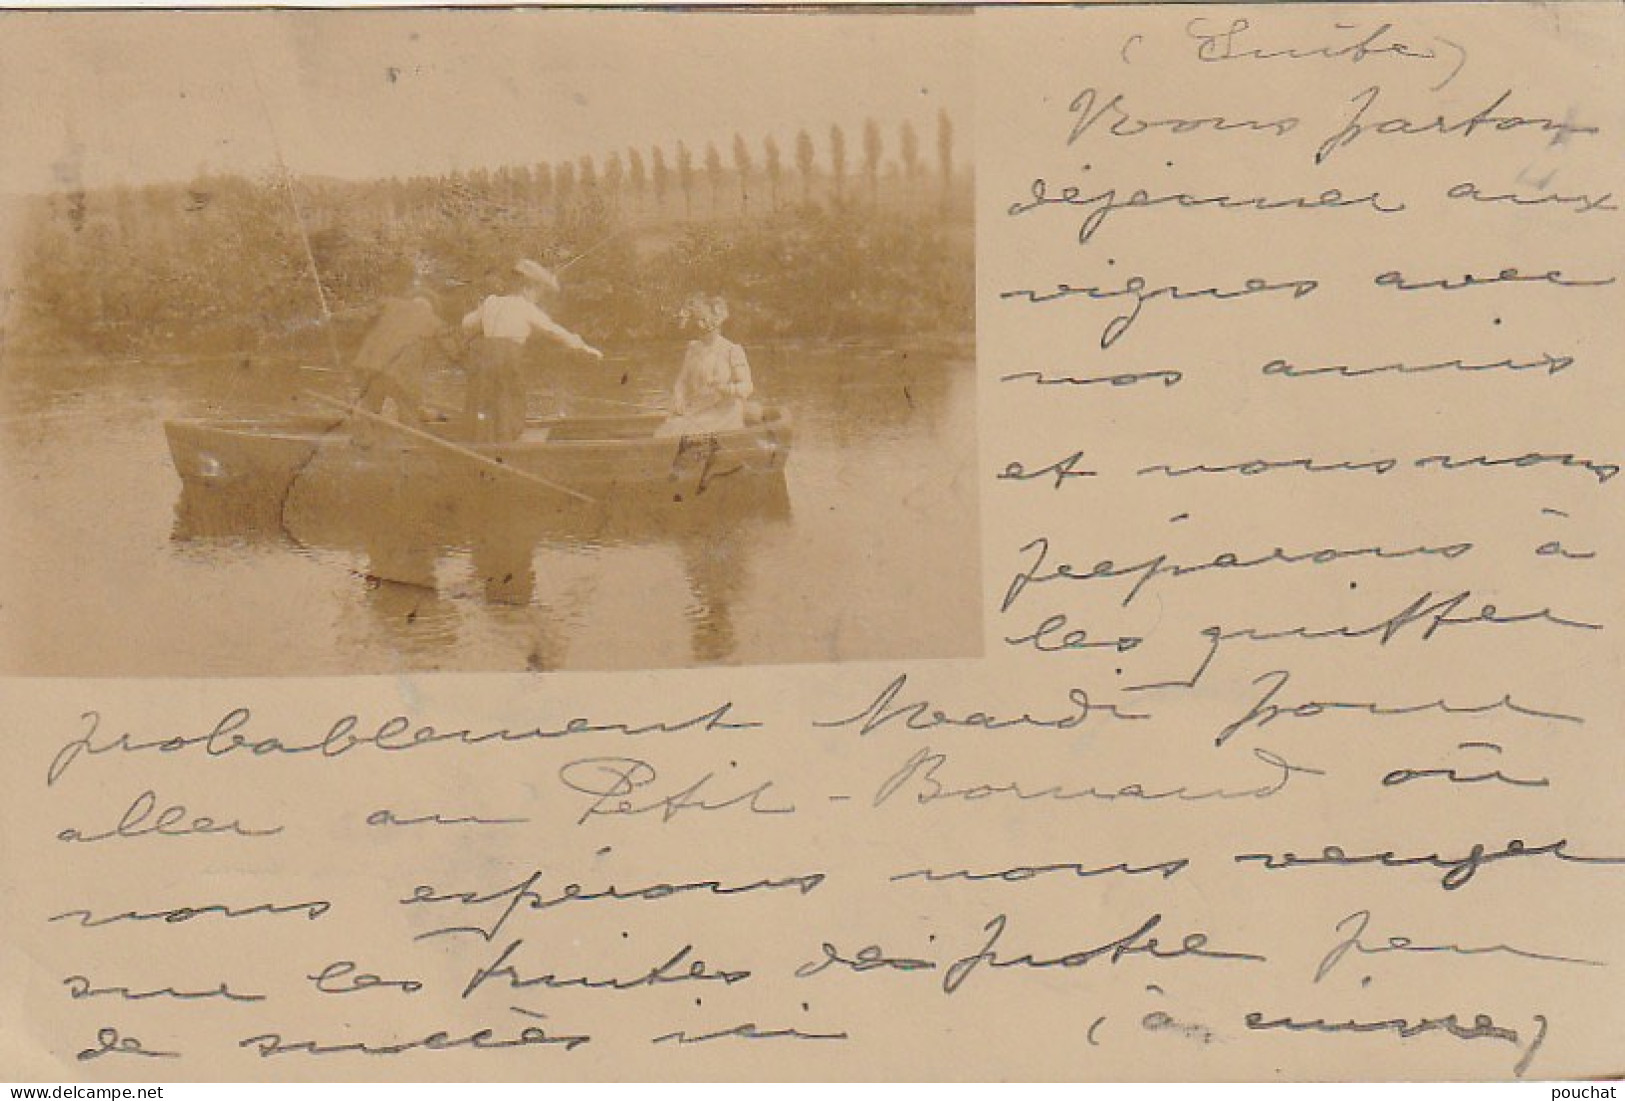 (Suite)
Nous partons
déjeuner aux
vignes avec
nos amis
et nous nous
préparons à
les quitter
probablement Mardi pour
aller au Petit-Bornand où
nous espérons nous venger
sur les truites de notre peu
de succès ici (à suivre)
www.delcampe.net
pouchat